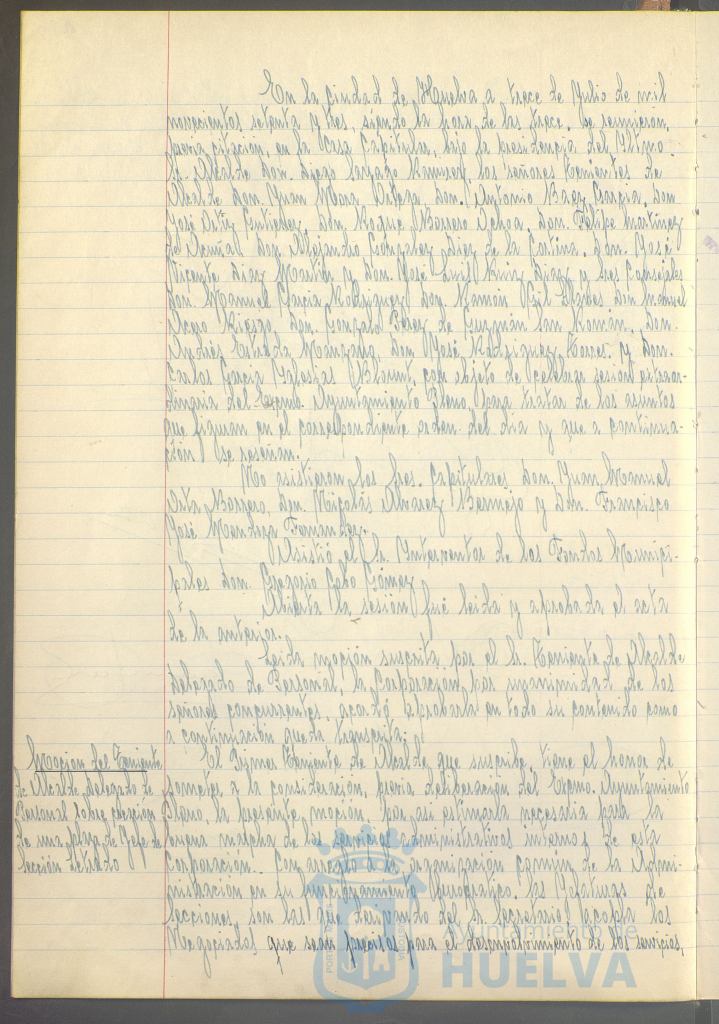 En la ciudad de Huelva a trece de Julio de mil
novecientos setenta y tres, siendo la hora de las trece. Se reunieron,
previa citación, en la Casa Capitular, bajo la presidencia del Iltmo.
Sr. Alcalde Don. Diego Ramirez, los señores Tenientes de
Alcalde Don. Juan Mora Don. Antonio Baez Garcia, Don
José Ortiz Gutierrez, Don. Roque Barrero Ochoa, Don. Felipe Martinez
de Acuña, Don. Alejandro Gonzalez Diez de la Cortina, Don. José
Vicente Diaz Martin y Don. José Luis Ruiz Diaz y Sres Concejales
Don. Manuel Garcia Rodriguez, Don. Ramón Don Manuel
Riesgo, Don. Gonzalo Perez de Guzmán San Román, Don.
Andrés Estrada Manzano, Don José Rodriguez Torres, y Don.
Carlos Garcia Yglesias Blount, con objeto de celebrar sesión extraor-
dinaria del Excmo. Ayuntamiento Pleno para tratar de los asuntos
que figuran en el correspondiente orden del día y que a continua-
ción se reseñan.
No asistieron los Sres. Capitulares Don. Juan Manuel
Orta Borrero, Don. Nicolás Alvarez Bermejo y Don. Francisco
José Fernandez.
Asistió el Sr. Interventor de los Fondos Munipi-
pales Don. Gregorio Cabo Gómez
Abierta la sesión fué leida y aprobada el acta
de la anterior.
Leida moción suscrita por el Sr. Teniente de Alcalde
Delegado de Personal, la Corporación, por unanimidad de los
señores concurrentes, acordó aprobarla en todo su contenido como
a continuación queda transcrita:
Moción del Teniente
de Alcalde delegado de
Personal sobre creación
de una plaza de Jefe de
Sección Letrado
El Primer Teniente de Alcalde que suscribe, tiene el honor de
someter a la consideración, previa deliberación del Excmo. Ayuntamiento
Pleno, la presente moción, por asi estimarla necesaria para la
buena marcha de los servicios administrativos internos de esta
Corporación.- Con arreglo a la organización común de la Admi-
nistración en su funcionamiento burocrático, las Jefaturas de
Secciones, son las que dependen del Sr. Secretario, acopla los
Negociados que sean precisos para el desenvolvimiento de los servicios,
Ayuntamiento de
HUELVA